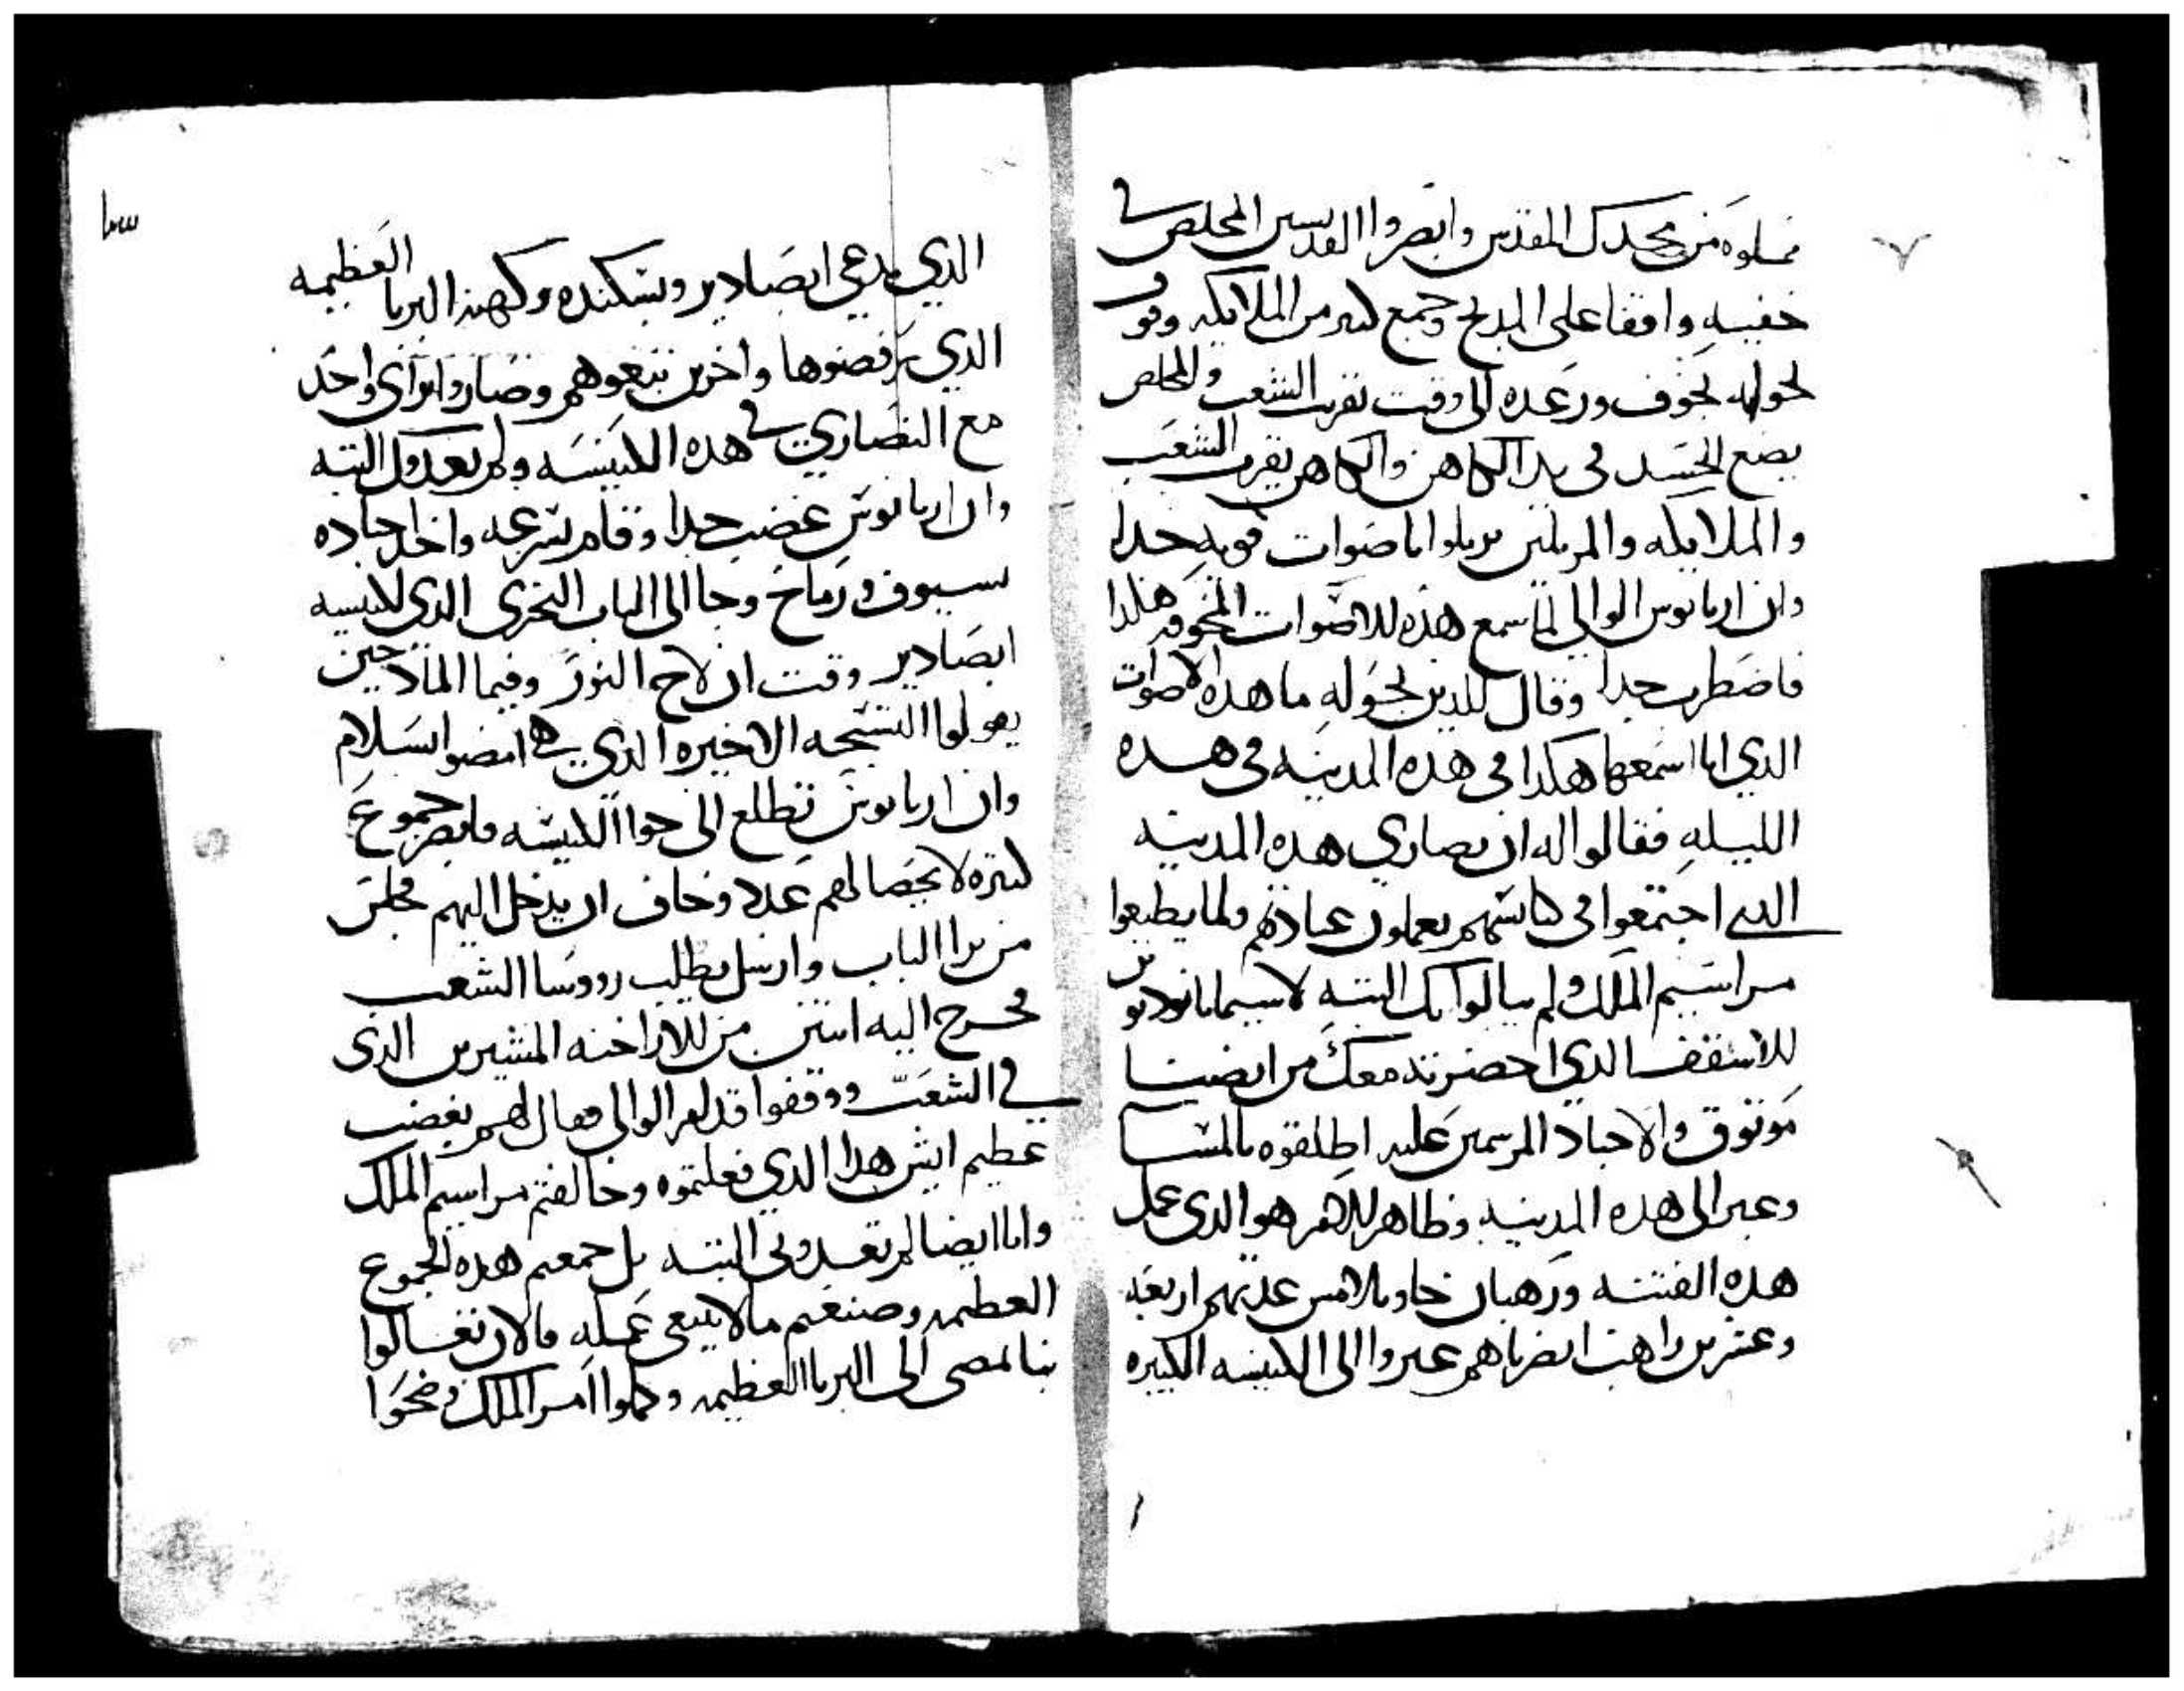 مملوه من مجدك المقدس وابصروا القديسين المخلص في
خفيه واقفا على المدبح وجمع كتير من الملايكه وقوف
حوليه بخوف ورعده الى وقت تقريب الشعب والمخلص
يضع الجسد في يد الكاهن والكاهن يقرب الشعب
والملايكه والمرتلين يرتلوا باصوات قويه جدا
وان اريانوس الوالي لما سمع هذه الاصوات المخوفه هكدا
فاضطرب جدا وقال للدين بحوله ما هده الاصوات
الدي انا اسمعها هكدا في هده المدينه في هده
الليله فقالوا له ان نصاري هده المدينه
الدي اجتمعوا في كنايسهم يعملون عبادتهم ولما يطيعوا
مراسيم الملك ولم يبالوا بك البته لاسيما
الاسقف الدي احضرته معك من انصنا
موتوق والاجناد المرسمين عليه اطلقوه بالمشا
وعبر الى هده المدينه وظاهر الامر هو الدي عمل
هده الفتنه ورهبان جاو بالامس عدتهم اربعه
وعشرين راهب ابصرناهم عبروا الى الكنيسه الكبيره
الدي يدعى ابصادير وبشكنده وكهنه البربا العظيمه
الدي رفضوها واخرين تبعوهم وصاروا براي واحد
مع النصاري في هده الكنيسه ولم يعدوك البته
وان اريانوس غضب جدا وقام بسرعه واخد اجناده
بسيوف ورماح وجا الى الباب البحري الدي لكنيسه
ابصادير وقت ان لاح النور وفيما المادحين
يقولوا التسبحه الاخيره الدي هي امضوا بسلام
وان اريانوس تطلع الى جوا الكنيسه فابصر جموع
كتيره لا يحصا لهم عدد وخاف ان يدخل اليهم فجلس
من برا الباب وارسل يطلب رووسا الشعب
فخرج اليه اتنين من الاراخنه المشيرين الدي
في الشعب ووقفوا قدام الوالي فقال لهم بغضب
عظيم ايش هدا الدي فعلتموه وخالفتم مراسيم الملك
وانا ايضا لم تعدوني البته بل جمعتم هده الجموع
العظيمه وصنعتم ما لا ينبغي عمله فالان تعالوا
بنا نمضي الى البربا العظيمه وكملوا امر الملك وضحوا